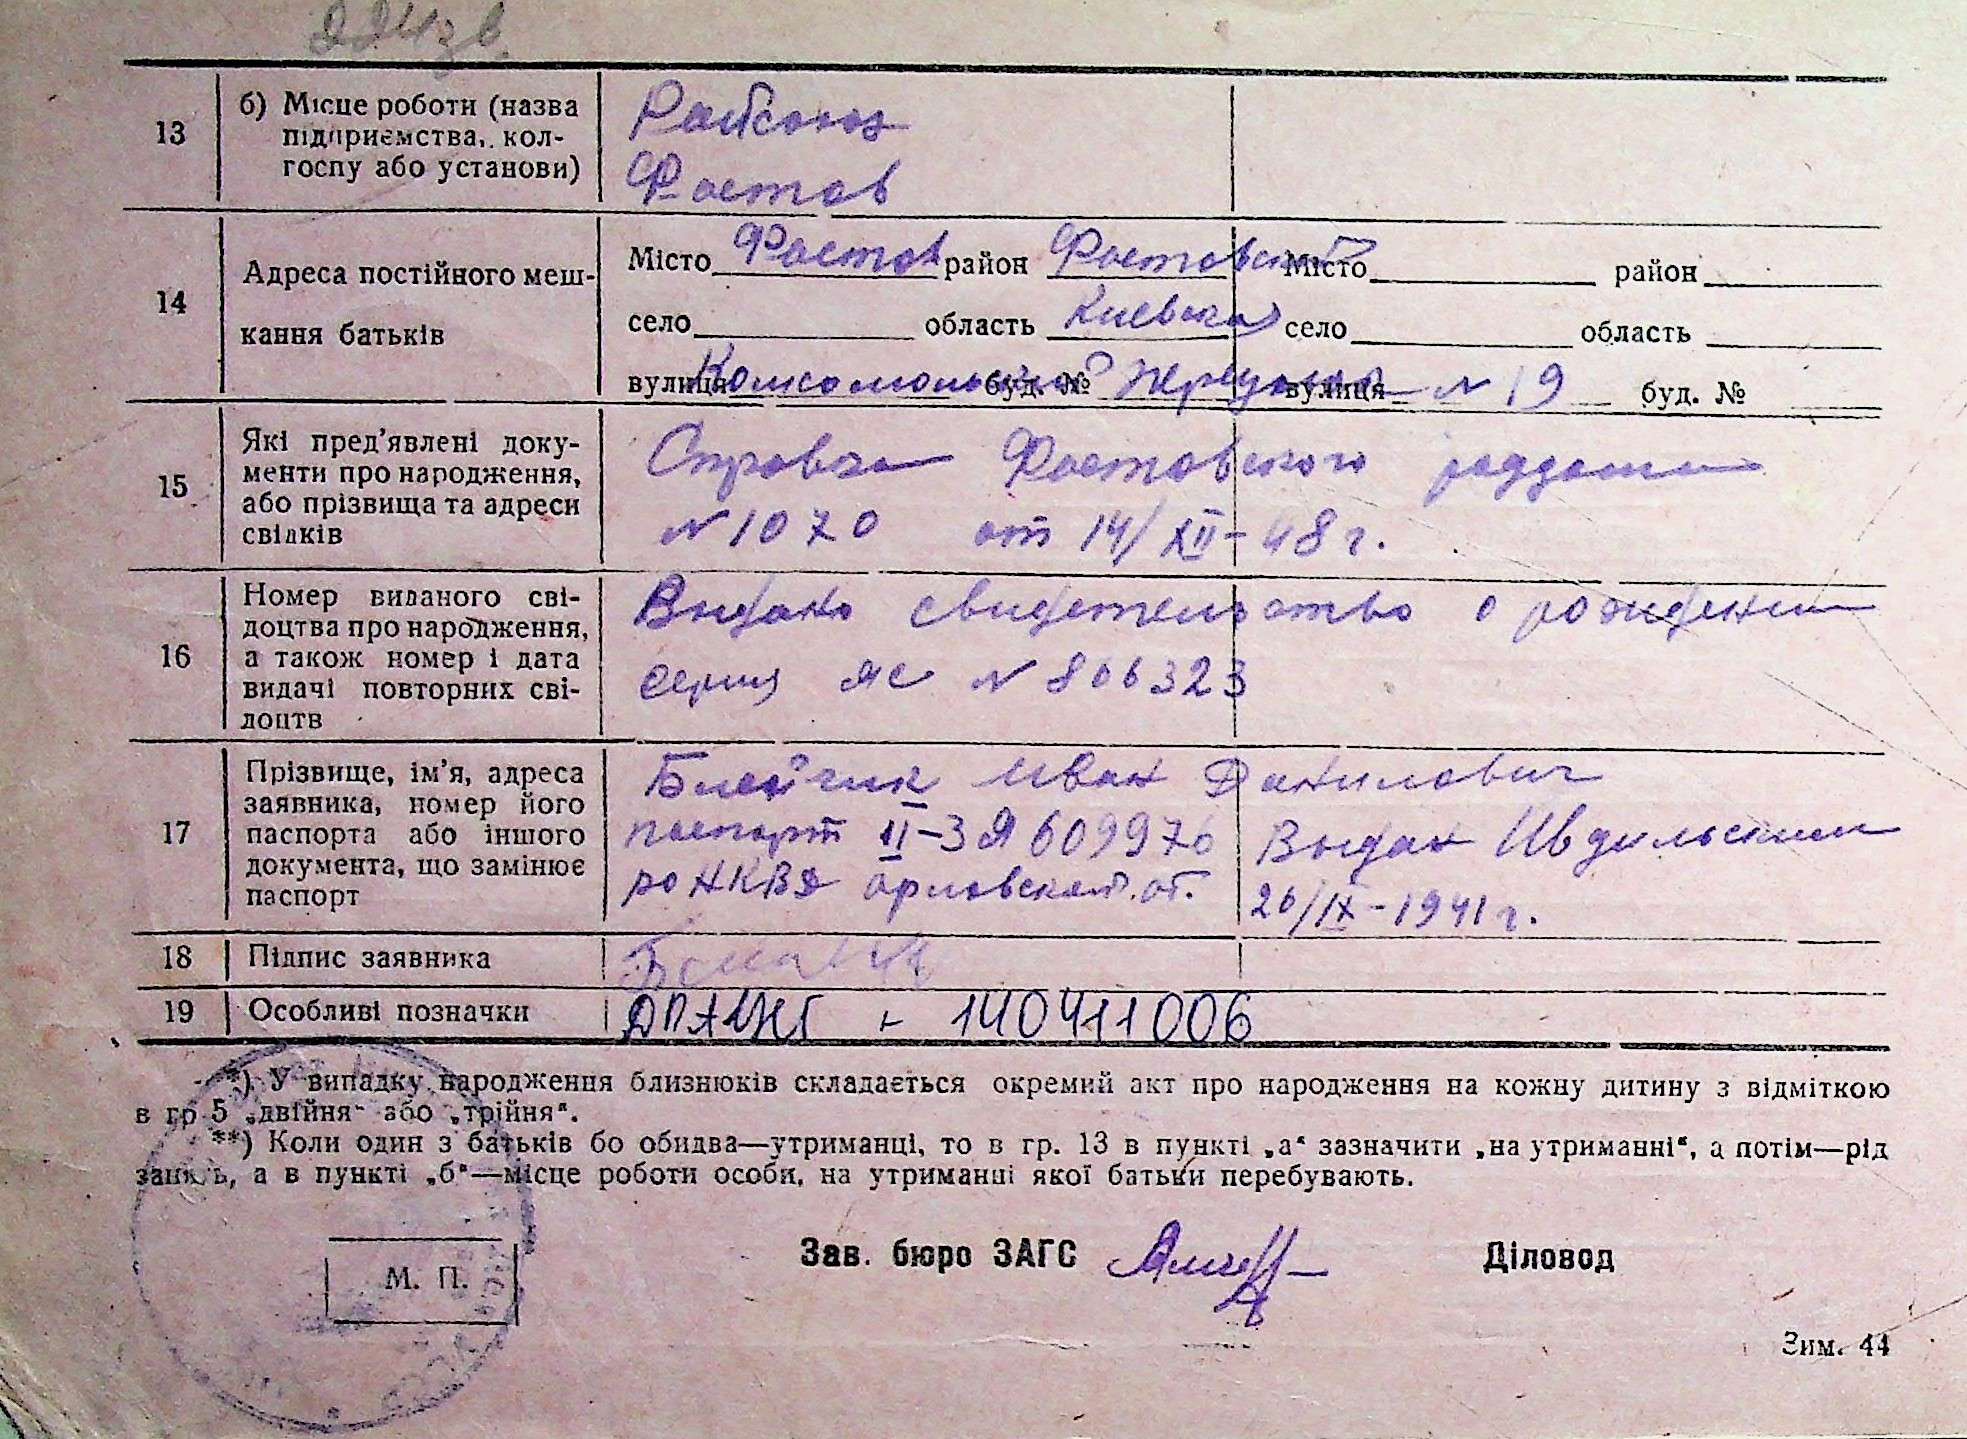 13
б) Місце роботи (назва
підприємства, кол-
госпу або установи)
Райсоюз
Фастов
14
Адреса постійного меш-
кання батьків
Місто Фастов район Фастовский Місто район
село область Киевска село область
вулиця Комсомольский буд. № переулок вулиця N 19 буд. №
15
Які пред'явлені доку-
менти про народження,
або прізвища та адреси
свідків
Справка Фастовского роддома
N 1070 от 14/XII-48 г.
16
Номер виданого сві-
доцтва про народження,
а також номер і дата
видачі повторних сві-
доцтв
Выдано свидетельство о рождении
серия ЯС N 806323
17
Прізвище, ім'я, адреса
заявника, номер його
паспорта або іншого
документа, що замінює
паспорт
Иван Данилович
паспорт II-ЗЯ 609976 Выдан Ивдельским
РО НКВД об. 26/IX-1941 г.
18 Підпис заявника
19 Особливі позначки - 140411006
*) У випадку народження близнюків складається окремий акт про народження на кожну дитину з відміткою
в гр 5 „двійня“ або „трійня“.
**) Коли один з батьків бо обидва—утриманці, то в гр. 13 в пункті „а“ зазначити „на утриманні“, а потім—рід
занять, а в пункті „б“—місце роботи особи, на утриманні якої батьки перебувають.
Зав. бюро ЗАГС Діловод
М. П.
Зим. 44